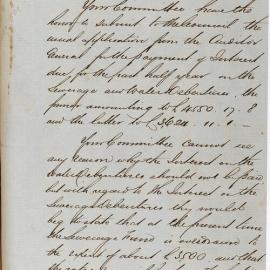 Your Committee have the
honor to submit to the Council the
usual application from the Auditor
General for the payment of Interest
due for the past half year on the
Sewerage and Water Debentures, the
former amounting to £4550. 17. 8
and the latter to £3624. 11. 1 —
Your Committee cannot see
any reason why the Interest on the
Water Debentures should not be paid
but with regard to the Interest on the
Sewerage Debentures they would
beg to state that at the present time
the Sewerage Fund is overdrawn to
the extent of about £3500 and that